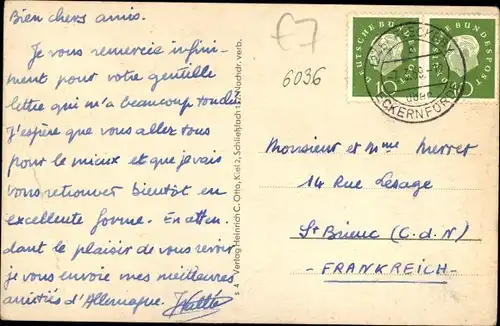 Bien chers amis.
Je vous remercie infini-
ment pour votre gentille
lettre qui m'a beaucoup
J'espère que vous allez tous
pour le mieux et que je vais
vous retrouver bientôt en
excellente forme. En atten-
dant le plaisir de vous revoir
je vous envoie mes meilleures
amitiés d'Allemagne.
£7
6036
s 4 Verlag Heinrich C. Otto, Kiel 2, Schließfach Nachdr. verb.
DEUTSCHE BUNDESPOST
10
DEUTSCHE BUNDESPOST
ECKERNFÖRDE
Monsieur et Mme
14 Rue Lesage
St Brieuc (C.d.N)
- FRANKREICH -